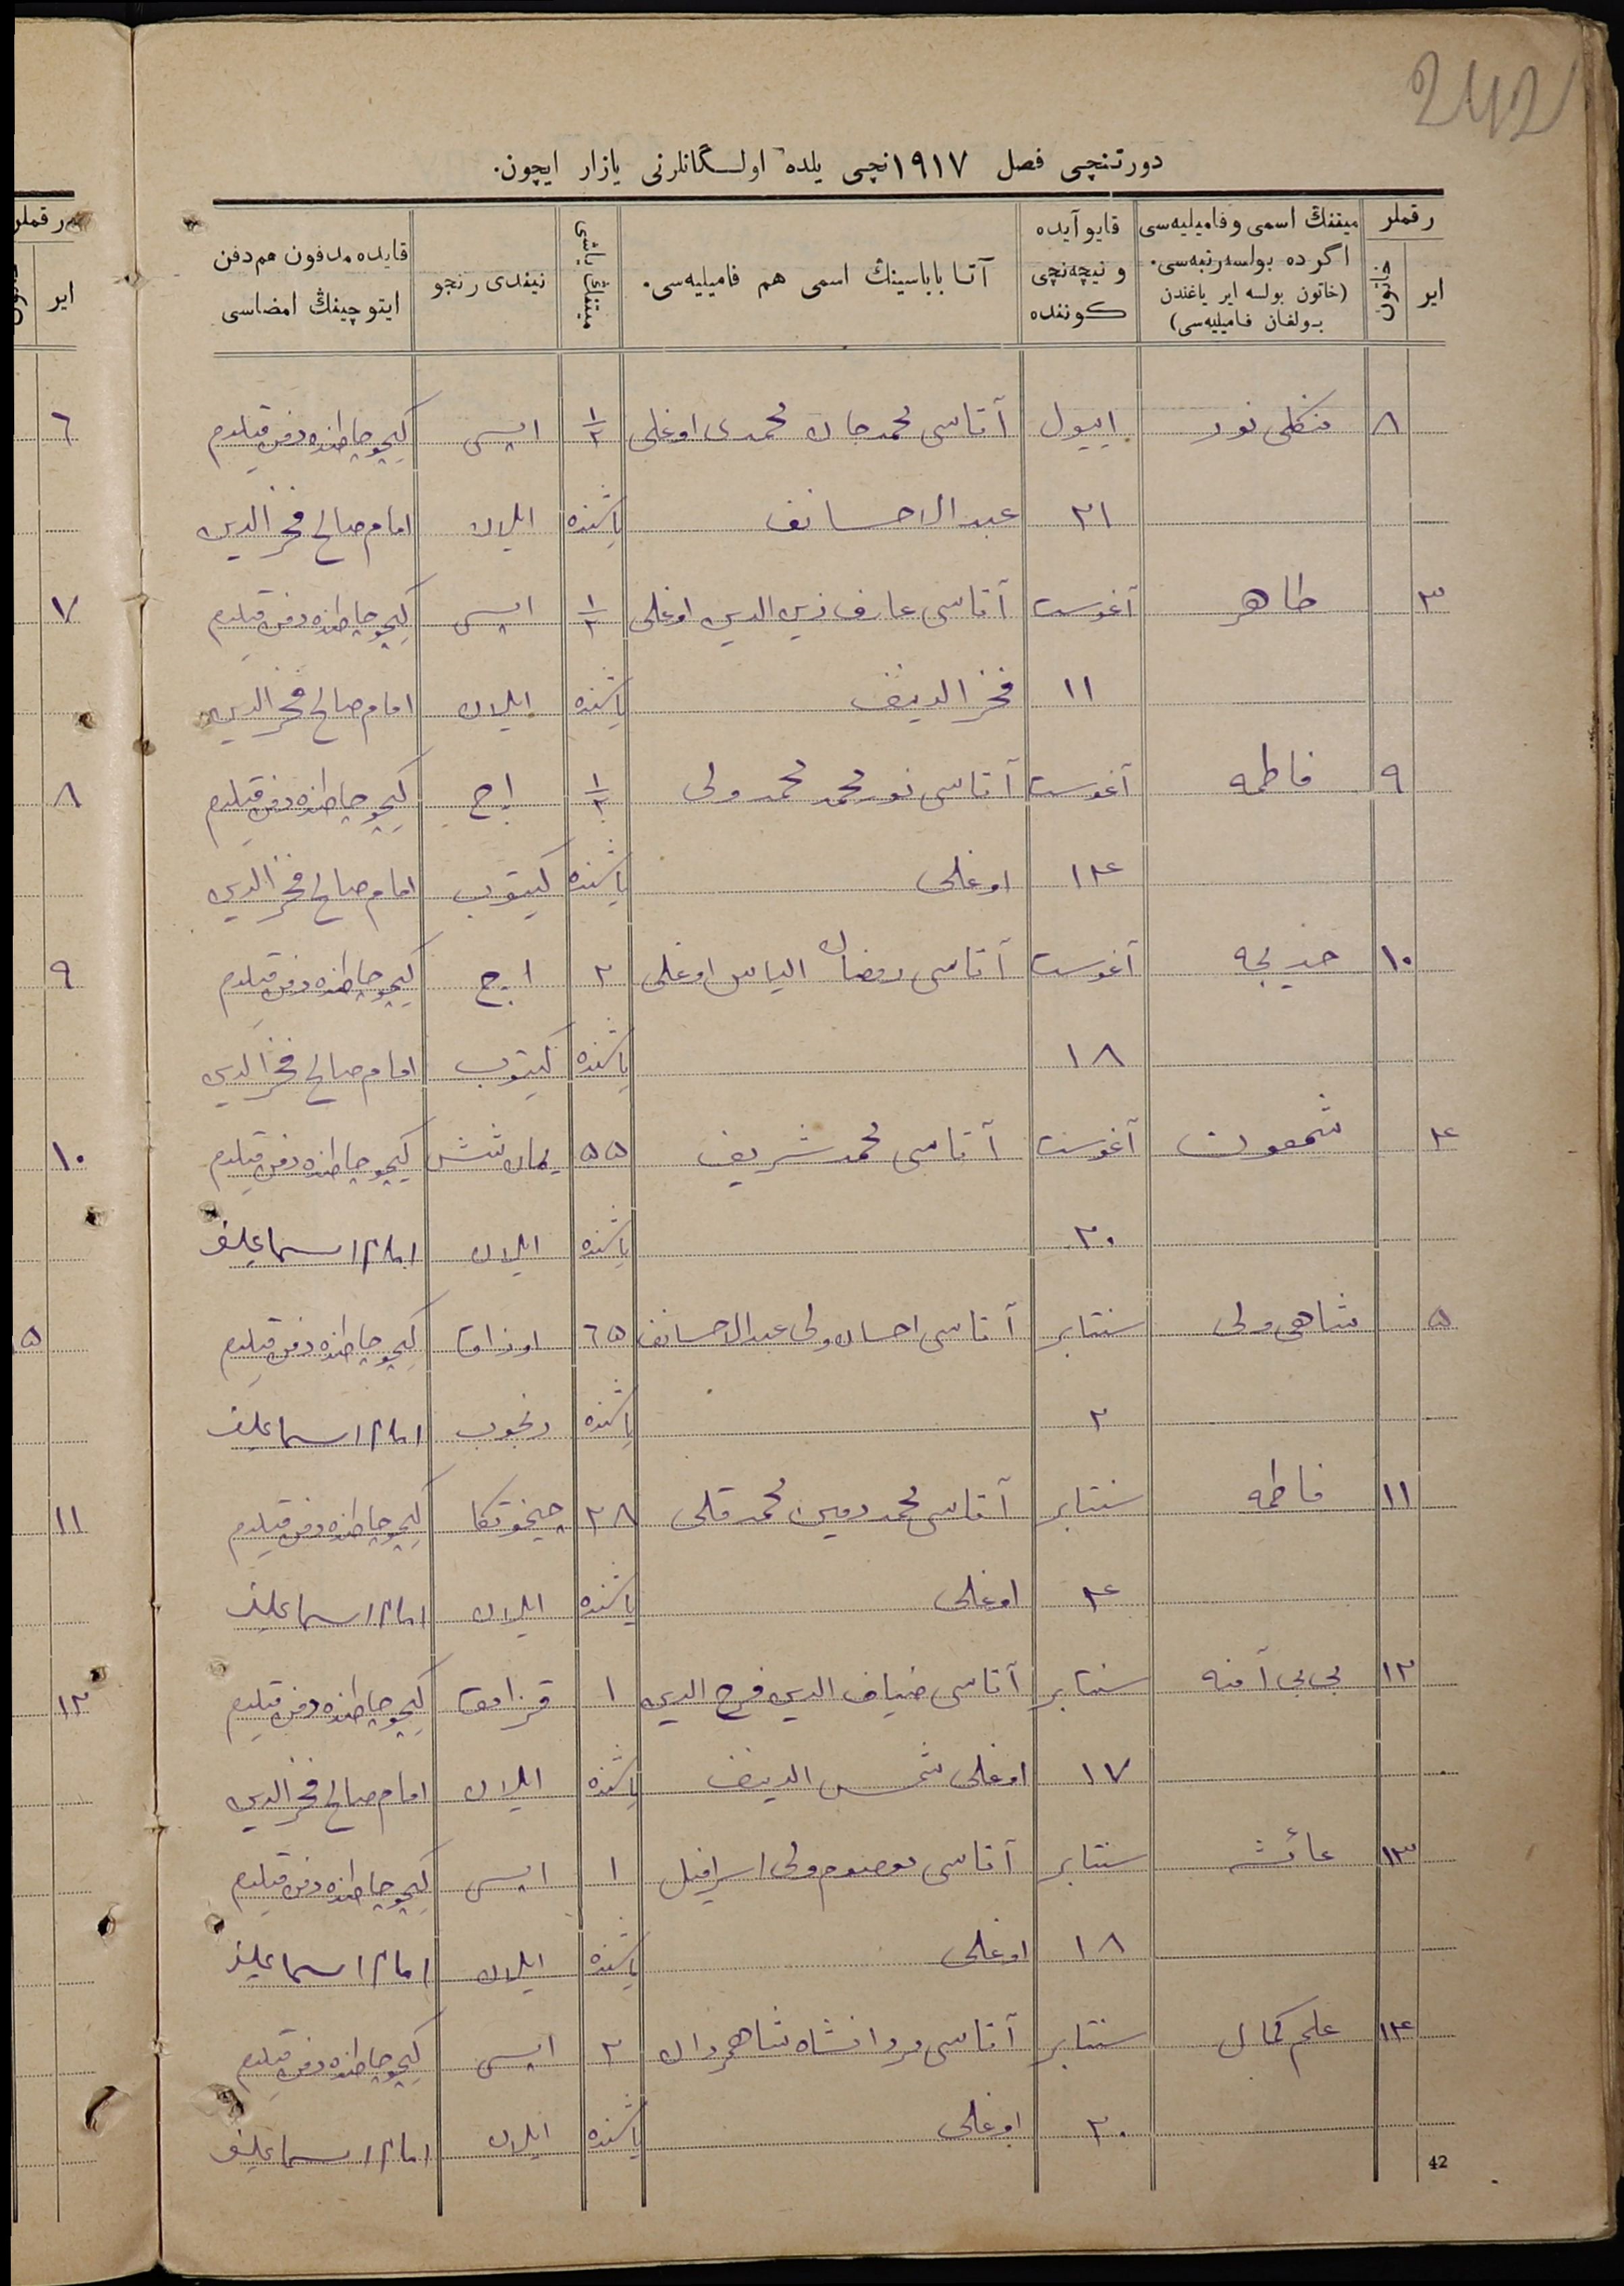 242
دورتنچی فصل ۱۹۱۷نچی یلده اولسگانلرنی یازار ایچون.
رقملر
ایر
خاتون
میتنڭ اسمی و فامیلیه‌سی
اگر ده بولسه رتبه‌سی.
(خاتون بولسه ایر یاغندن
بولغان فامیلیه‌سی)
قایو آیده
و نیچه‌نچی
کوننده
آتا باباسینڭ اسمی هم فامیلیه‌سی.
میتنڭ یاشی
نیندی رنجو
قایده مدفون هم دفن
ایتوچینڭ امضاسی
۸ منکلی نور اییول آتاسی محمدجان محمدی اوغلی ۱/۲ ایسی کیچو چاطنده دفن قیلدم
۲۱ عبدالاحسانف یاشنده ایلان امام صالح فخرالدین
۳ طاهر آغوست آتاسی عارف زین الدین اوغلی ۱/۲ ایسی کیچو چاطنده دفن قیلدم
۱۱ فخرالدینف یاشنده ایلان امام صالح فخرالدین
۹ فاطمه آغوست آتاسی نورمحمد محمد ولی ۱/۲ اچ کیچو چاطنده دفن قیلدم
۱۴ اوغلی یاشنده کیتوب امام صالح فخرالدین
۱۰ خدیجه آغوست آتاسی رمضان الیاس اوغلی ۲ اچ کیچو چاطنده دفن قیلدم
۱۸ یاشنده کیتوب امام صالح فخرالدین
۴ شمعون آغوست آتاسی محمد شریف ۵۵ یمان شش کیچو چاطنده دفن قیلدم
۲۰ یاشنده ایلان امام اسماعیلف
۵ شاهی ولی سنتابر آتاسی احسان ولی عبدالاحسانف ۶۵ اوزاق کیچو چاطنده دفن قیلدم
۲ یاشنده رنجوب امام اسماعیلف
۱۱ فاطمه سنتابر آتاسی محمد رمین محمد قلی ۲۸ چیخوتکا کیچو چاطنده دفن قیلدم
۴ اوغلی یاشنده ایلان امام اسماعیلف
۱۲ بی بی آمنه سنتابر آتاسی ضیاف الدین فرح الدین ۱ قزامق کیچو چاطنده دفن قیلدم
۱۷ اوغلی شمس الدینف یاشنده ایلان امام صالح فخرالدین
۱۳ عائشه سنتابر آتاسی معصوم ولی اسرافیل ۱ ایسی کیچو چاطنده دفن قیلدم
۱۸ اوغلی یاشنده ایلان امام اسماعیلف
۱۴ علم کمال سنتابر آتاسی مردانشاه شاهمردان ۲ ایسی کیچو چاطنده دفن قیلدم
۲۰ اوغلی یاشنده ایلان امام اسماعیلف
42
رقملر
ایر
۶
۷
۸
۹
۱۰
۵
۱۱
۱۲